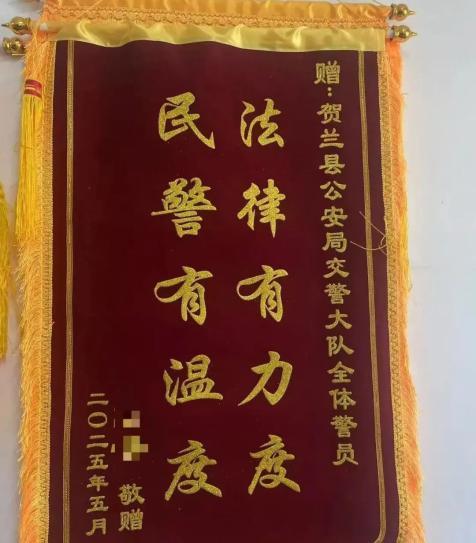 赠：贺兰县公安局交警大队全体警员
法律有力度
民警有温度
敬赠
二〇二五年五月